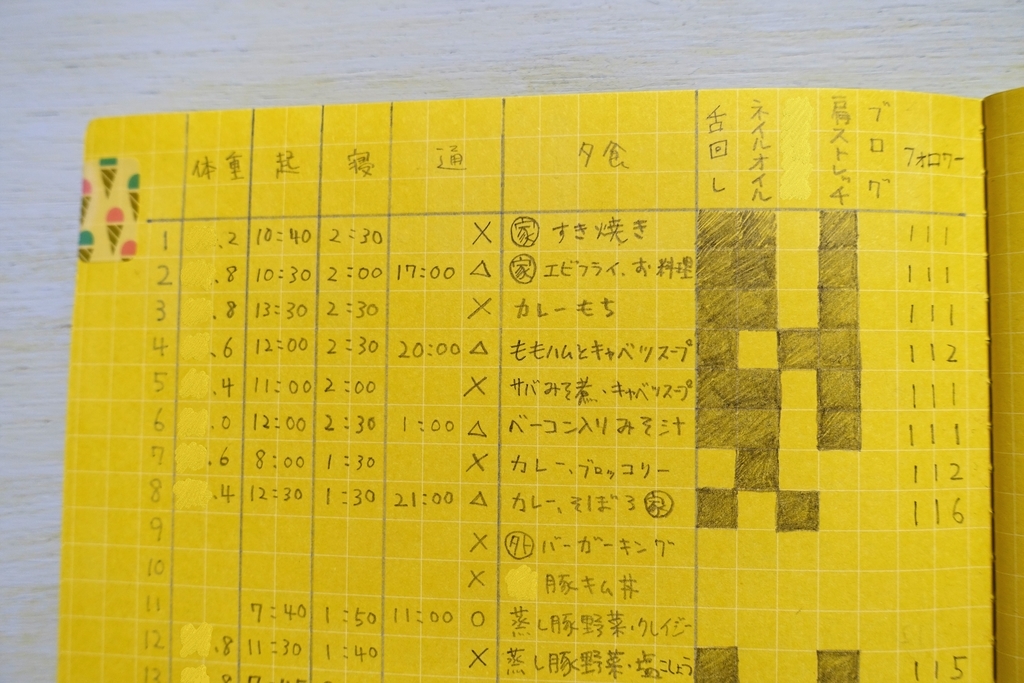 体重 起 寝 通 夕食 舌回し ネイルオイル 肩ストレッチ ブログ フォロワー
1 .2 10:40 2:30 × 家 すき焼き 111
2 .8 10:30 2:00 17:00 △ 家 エビフライ、お料理 111
3 .8 13:30 2:30 × カレーもち 111
4 .6 12:00 2:30 20:00 △ ももハムとキャベツスープ 112
5 .4 11:00 2:00 × サバみそ煮、キャベツスープ 111
6 .0 12:00 2:30 1:00 △ ベーコン入りみそ汁 111
7 .6 8:00 1:30 × カレー、ブロッコリー 112
8 .4 12:30 1:30 21:00 △ カレー、そぼろ 家 116
9 × 外 バーガーキング
10 × 豚キム丼
11 7:40 1:50 11:00 ○ 蒸し豚野菜・クレイジー
12 .8 11:30 1:40 × 蒸し豚野菜・塩こしょう 115
13